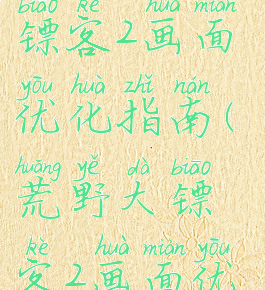 biāo kè huà miàn
镖客2画面
yōu huà zhǐ nán
优化指南(
huāng yě dà biāo
荒野大镖
kè huà miàn yōu
客2画面优